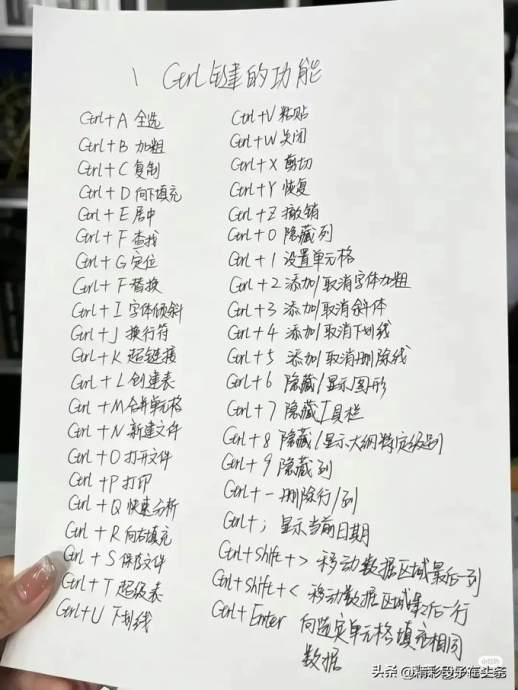 1 Ctrl键的功能
Ctrl+A 全选
Ctrl+B 加粗
Ctrl+C 复制
Ctrl+D 向下填充
Ctrl+E 居中
Ctrl+F 查找
Ctrl+G 定位
Ctrl+F 替换
Ctrl+I 字体倾斜
Ctrl+J 换行符
Ctrl+K 超链接
Ctrl+L 创建表
Ctrl+M 合并单元格
Ctrl+N 新建文件
Ctrl+O 打开文件
Ctrl+P 打印
Ctrl+Q 快速分析
Ctrl+R 向右填充
Ctrl+S 保存文件
Ctrl+T 超级表
Ctrl+U 下划线
Ctrl+V 粘贴
Ctrl+W 关闭
Ctrl+X 剪切
Ctrl+Y 恢复
Ctrl+Z 撤销
Ctrl+0 隐藏列
Ctrl+1 设置单元格
Ctrl+2 添加/取消字体加粗
Ctrl+3 添加/取消斜体
Ctrl+4 添加/取消下划线
Ctrl+5 添加/取消删除线
Ctrl+6 隐藏/显示图形
Ctrl+7 隐藏工具栏
Ctrl+8 隐藏/显示大纲
Ctrl+9 隐藏列
Ctrl+- 删除行/列
Ctrl+; 显示当前日期
Ctrl+Shift+> 移动数据区域最后一列
Ctrl+Shift+< 移动数据区域最后一行
Ctrl+Enter 向选定单元格填充相同
数据
小红书
头条